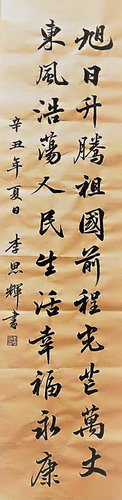 旭日升騰祖國前程光芒萬丈
東風浩蕩人民生活幸福永康
辛丑年夏日 李思輝書